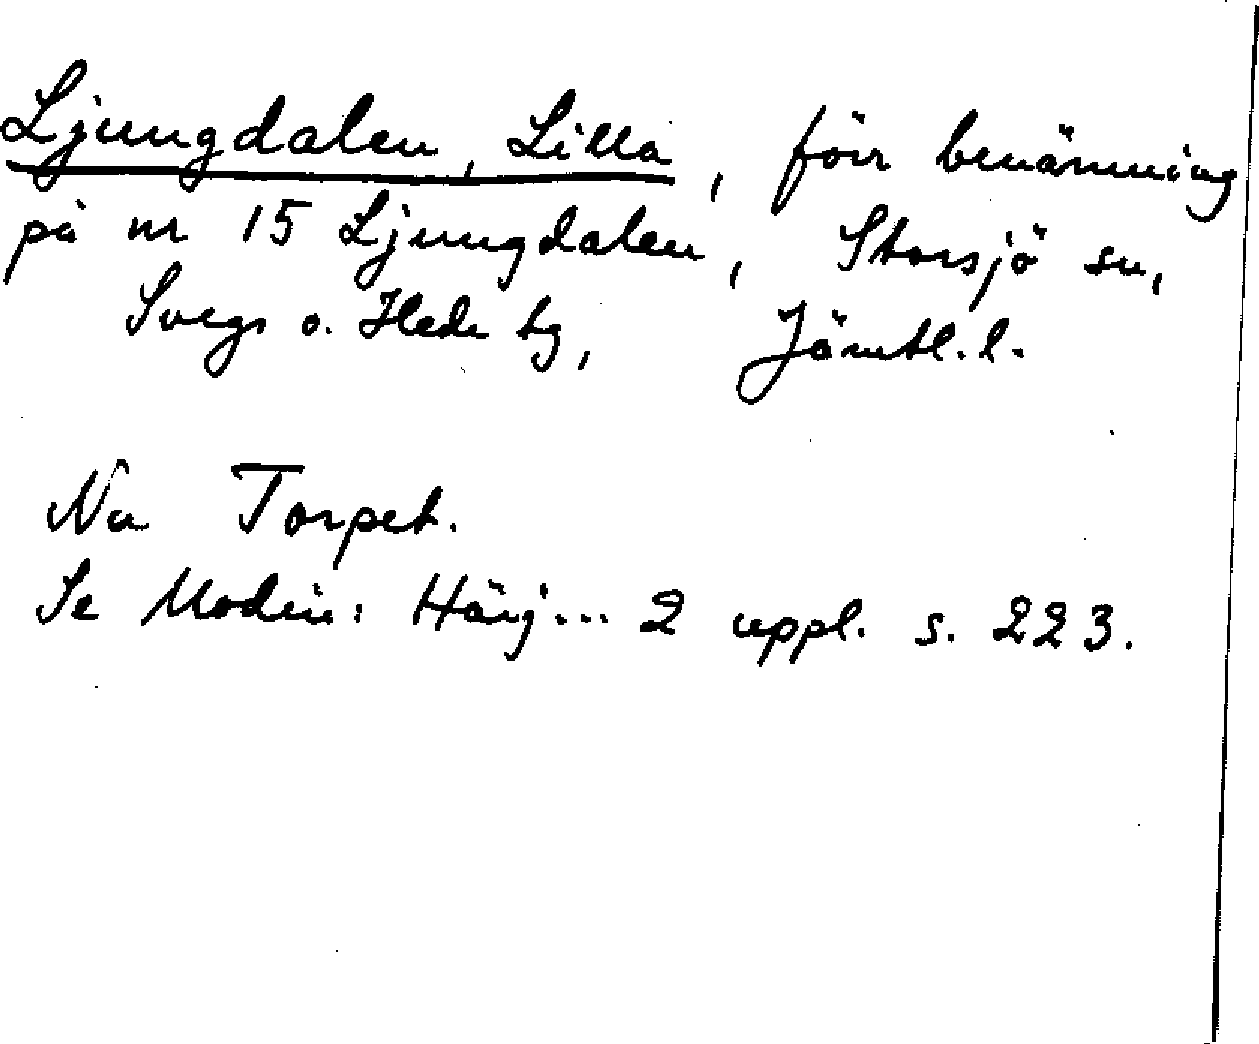 Ljungdalen, Lilla, förr benämning
på nr 15 Ljungdalen, Storsjö sn,
Svegs o. Hede tg, Jämtl. l.
Nu Torpet.
Se Modin: Härj... 2 uppl. s. 223.